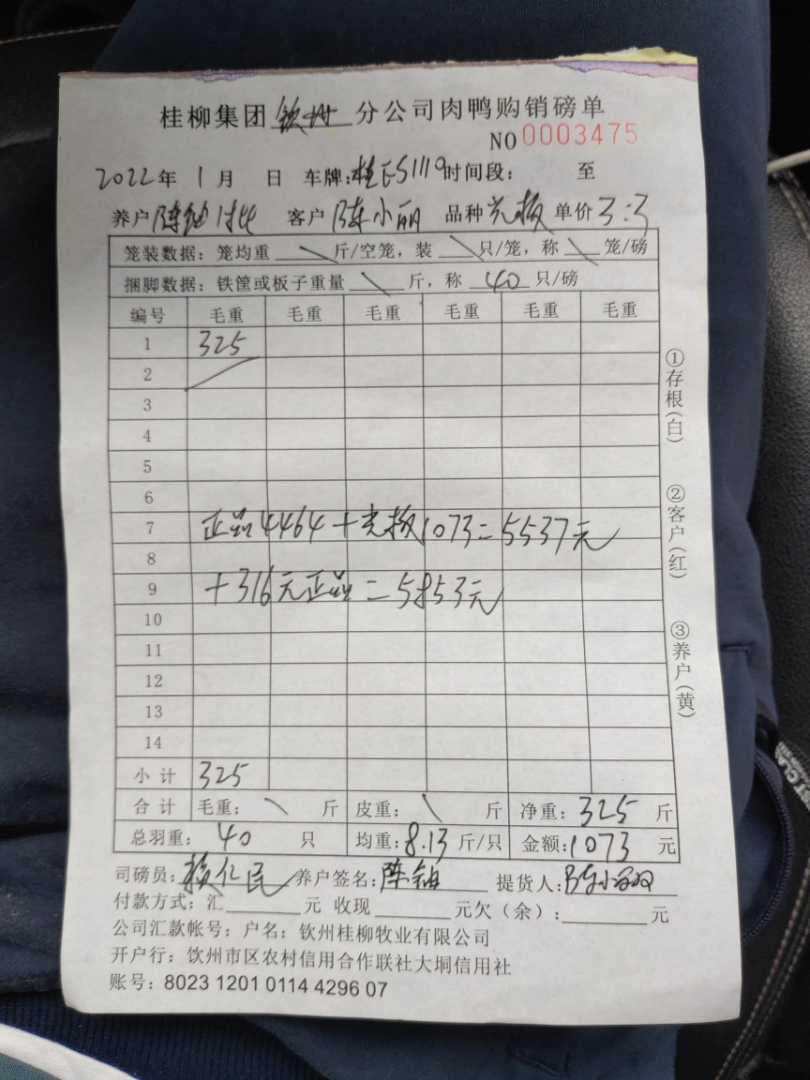 桂柳集团 钦州 分公司肉鸭购销磅单
NO 0003475
2022年 1月 日 车牌:桂ES1119 时间段: 至
养户 陈铀 客户 陈小丽 品种 光板 单价 3.3
笼装数据:笼均重 \ 斤/空笼,装 \ 只/笼,称 \ 笼/磅
捆脚数据:铁筐或板子重量 \ 斤,称 40 只/磅
编号 毛重 毛重 毛重 毛重 毛重 毛重
1 325
2
3
4
5
6
7 正品4464+光板1073=5537元
8
9 +316元正品=5853元
10
11
12
13
14
小计 325
合计 毛重: \ 斤 皮重: \ 斤 净重: 325 斤
总羽重: 40 只 均重: 8.13 斤/只 金额: 1073 元
司磅员: 仁民 养户签名: 陈铀 提货人: 陈小
付款方式:汇 元 收现 元欠(余): 元
公司汇款帐号:户名:钦州桂柳牧业有限公司
开户行:钦州市区农村信用合作联社大垌信用社
账号:8023 1201 0114 4296 07
①存根(白)
②客户(红)
③养户(黄)